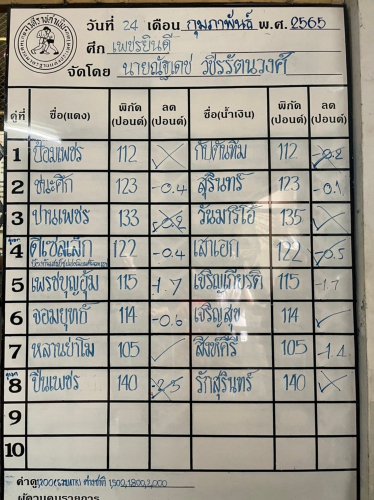 วันที่ 24 เดือน กุมภาพันธ์ พ.ศ. 2565
ศึก เพชรยินดี
จัดโดย นายณัฐเดช วชิรรัตนวงศ์
คู่ที่ ชื่อ(แดง) พิกัด (ปอนด์) ลด (ปอนด์) ชื่อ(น้ำเงิน) พิกัด (ปอนด์) ลด (ปอนด์)
1 ป้อมเพชร 112 ทับทิม 112 -0.2
2 ชนะศึก 123 -0.4 สุรินทร์ 123 -0.1
3 ปานเพชร 133 -0.2 วันมาริโอ้ 135 ✓
4 ดีเซลเล็ก 122 -0.4 เสาเอก 122 -0.5
5 เพชรบุญอุ้ม 115 -1.7 เจริญเกียรติ 115 -1.7
6 จอมยุทธ์ 114 -0.6 เจริญสุข 114 ✓
7 หลานย่าโม 105 ✓ สิงห์คีรี 105 -1.4
8 ปืนเพชร 140 -2.5 รักสุรินทร์ 140
9
10
ค่าดู ต่างชาติ 1,500,1,800,2,000
ผู้ควบคุมรายการ